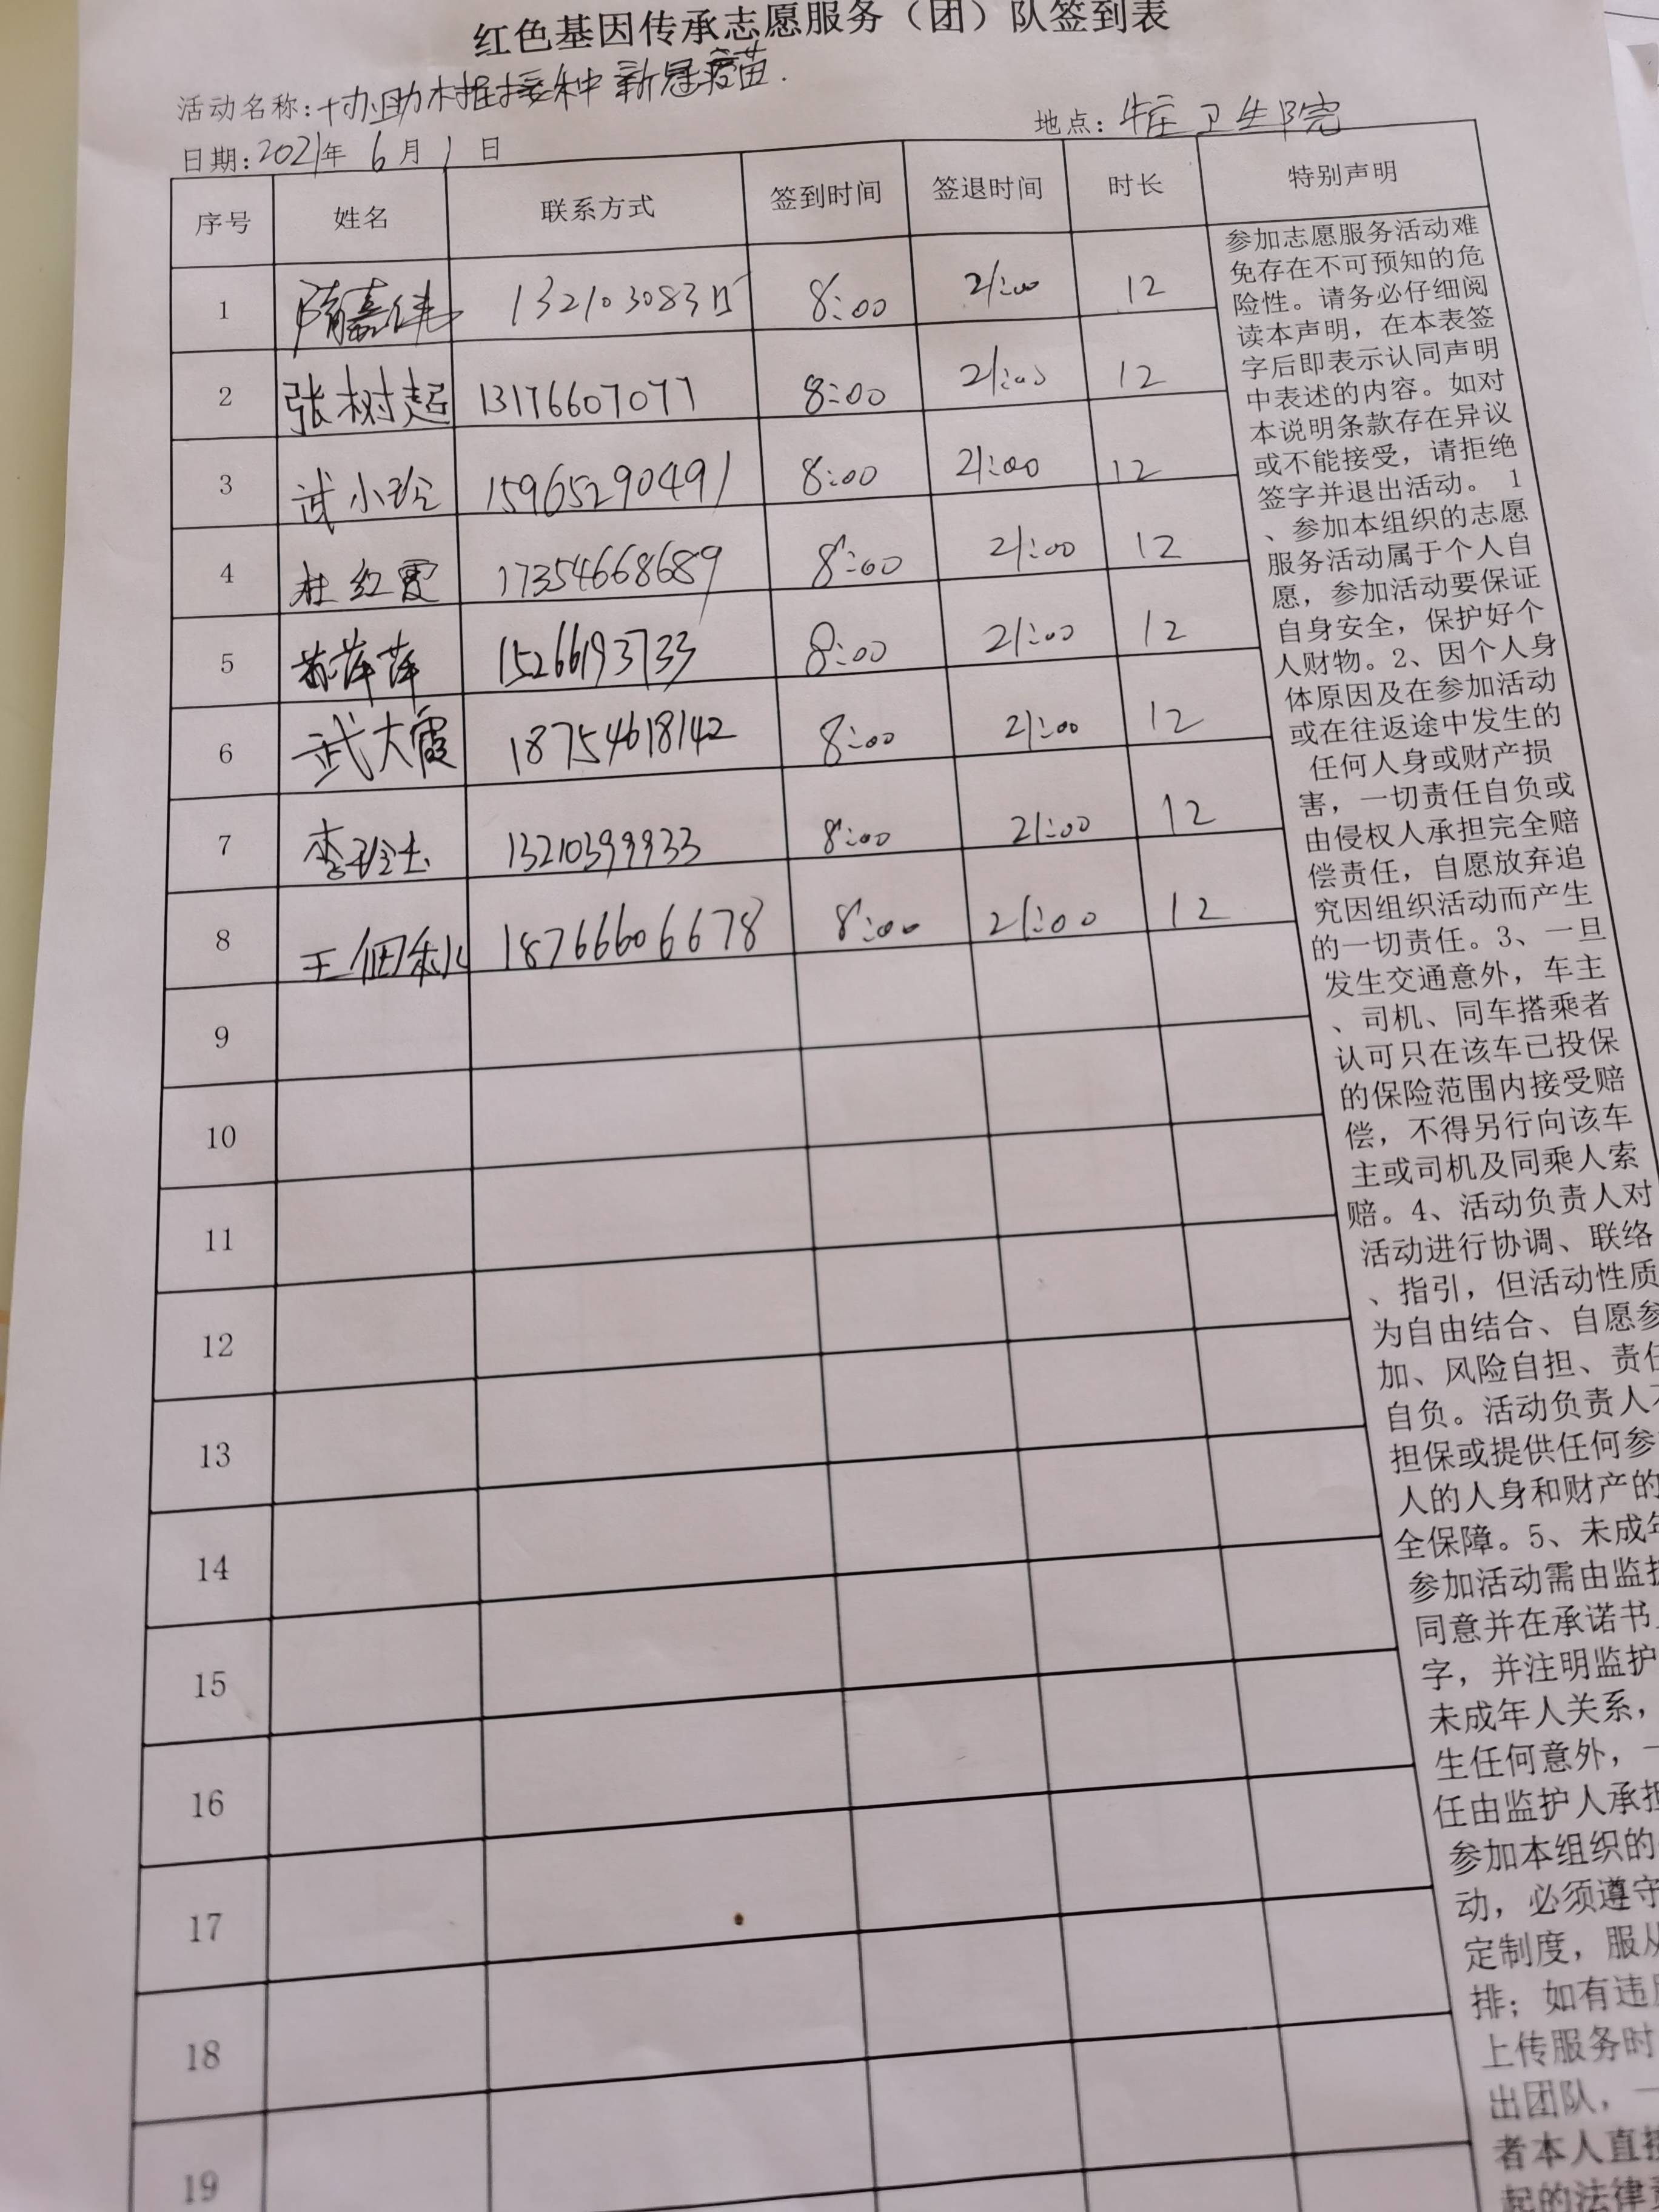 红色基因传承志愿服务（团）队签到表
活动名称: 协助 接种新冠疫苗.
地点: 卫生院
日期: 2021年 6月 1日
序号 姓名 联系方式 签到时间 签退时间 时长 特别声明
1 隋嘉伟 132103083 8:00 21:00 12
2 张树起 13176607077 8:00 21:00 12
3 武小玲 15965290491 8:00 21:00 12
4 杜红霞 17354668689 8:00 21:00 12
5 苏萍萍 15266193733 8:00 21:00 12
6 武大霞 18754618142 8:00 21:00 12
7 李 13210399933 8:00 21:00 12
8 王佃利 18766606678 8:00 21:00 12
9
10
11
12
13
14
15
16
17
18
19
参加志愿服务活动难
免存在不可预知的危
险性。请务必仔细阅
读本声明，在本表签
字后即表示认同声明
中表述的内容。如对
本说明条款存在异议
或不能接受，请拒绝
签字并退出活动。 1
、参加本组织的志愿
服务活动属于个人自
愿，参加活动要保证
自身安全，保护好个
人财物。2、因个人身
体原因及在参加活动
或在往返途中发生的
任何人身或财产损
害，一切责任自负或
由侵权人承担完全赔
偿责任，自愿放弃追
究因组织活动而产生
的一切责任。3、一旦
发生交通意外，车主
、司机、同车搭乘者
认可只在该车已投保
的保险范围内接受赔
偿，不得另行向该车
主或司机及同乘人索
赔。4、活动负责人对
活动进行协调、联络
、指引，但活动性质
为自由结合、自愿参
加、风险自担、责任
自负。活动负责人不
担保或提供任何参
人的人身和财产的
全保障。5、未成年
参加活动需由监护
同意并在承诺书
字，并注明监护
未成年人关系，
生任何意外，一
任由监护人承担
参加本组织的
动，必须遵守
定制度，服从
排；如有违
上传服务时
出团队，一
者本人直接
起的法律